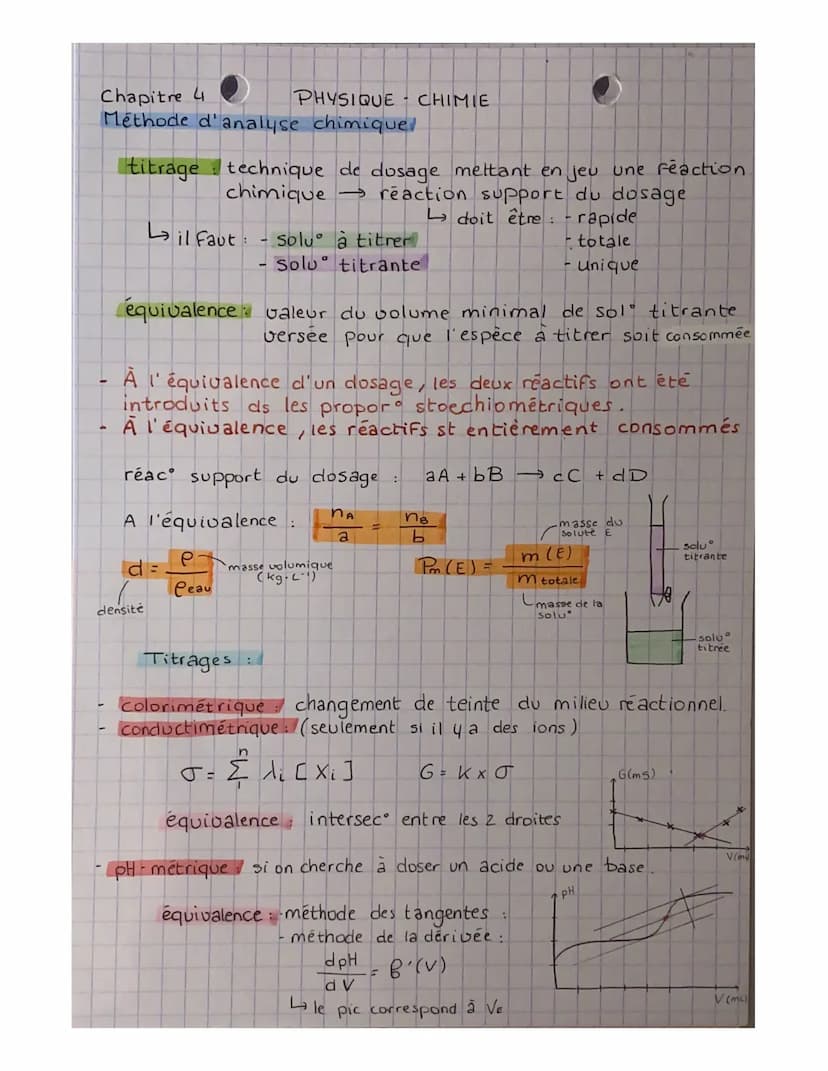 Chapitre 4 PHYSIQUE - CHIMIE
Méthode d'analyse chimique
titrage : technique de dosage mettant en jeu une réaction
chimique → réaction support du dosage
↳ doit être : - rapide
↳ il faut : - solu° à titrer - totale
- solu° titrante - unique
équivalence : valeur du volume minimal de sol° titrante
versée pour que l'espèce à titrer soit consommée
- À l'équivalence d'un dosage, les deux réactifs ont été
introduits ds les propor° stoechiométriques.
- À l'équivalence, les réactifs st entièrement consommés
réac° support du dosage : aA + bB → cC + dD
A l'équivalence : nA/a = nB/b
masse du
soluté E
d = ρ/ρeau
masse volumique
(kg·L⁻¹)
densité
Pm(E) = m(E)/m totale
masse de la
solu°
solu°
titrante
solu°
titrée
Titrages :
- colorimétrique : changement de teinte du milieu réactionnel.
- conductimétrique : (seulement si il y a des ions)
σ = Σ λi [Xi] G = K x σ
n
1
G(mS)
équivalence : intersec° entre les 2 droites
V(mL)
- pH-métrique : si on cherche à doser un acide ou une base.
pH
équivalence : - méthode des tangentes :
- méthode de la dérivée :
dpH/dV = β'(V)
↳ le pic correspond à Ve
V(mL)